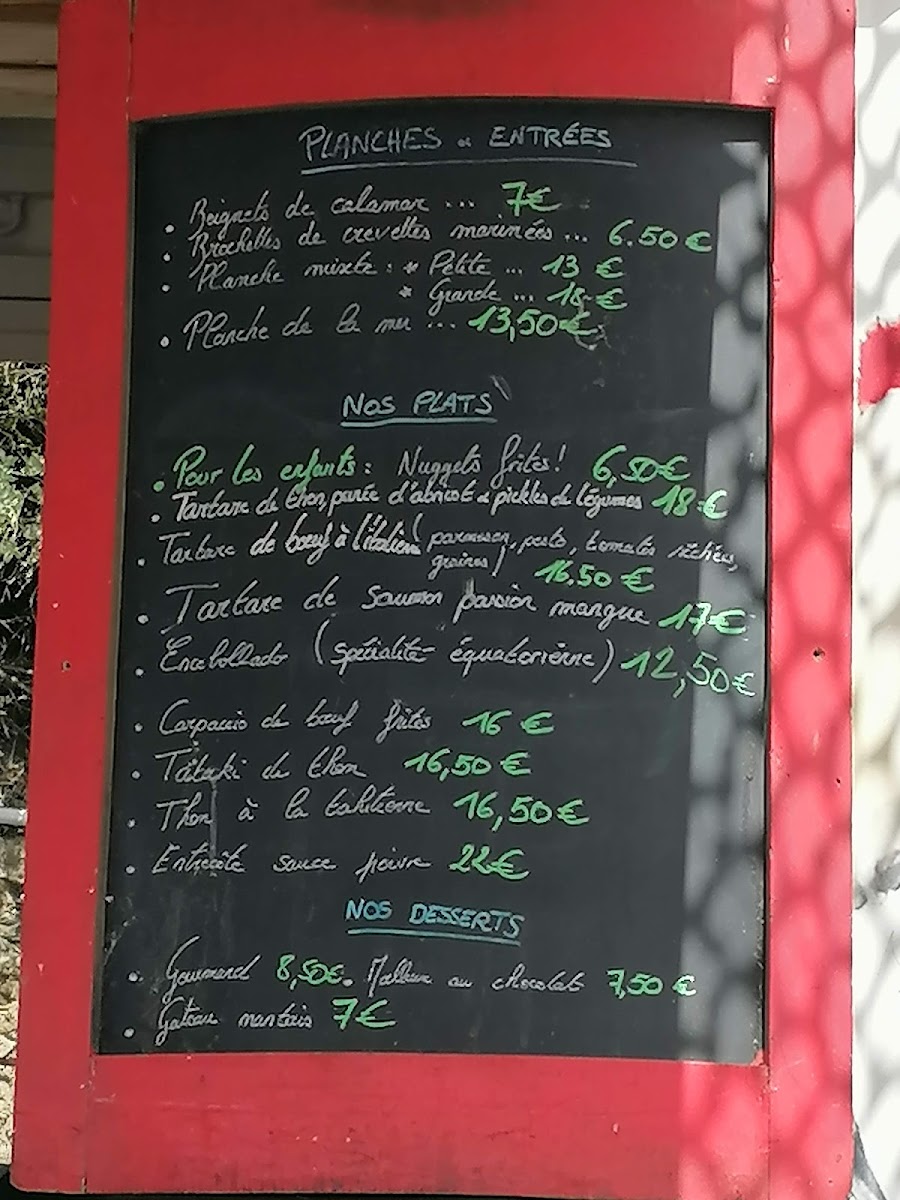 PLANCHES & ENTRÉES
• Beignets de calamar ... 7€
• Brochettes de crevettes marinées ... 6.50 €
• Planche mixte : * Petite ... 13 €
* Grande ... 18 €
• Planche de la mer ... 13,50€
NOS PLATS
• Pour les enfants : Nuggets frites ! 6,50€
• Tartare de thon, purée d'abricot & pickles de légumes 18 €
• Tartare de bœuf à l'italien (parmesan, pesto, tomates séchées,
graines) 16.50 €
• Tartare de saumon passion mangue 17€
• Encebollado (spécialité équatorienne) 12,50€
• Carpaccio de bœuf frites 16 €
• Tataki de thon 16,50 €
• Thon à la tahitienne 16,50€
• Entrecôte sauce poivre 22€
NOS DESSERTS
• Gourmand 8,50€ • au chocolat 7,50 €
• Gateau nantais 7€